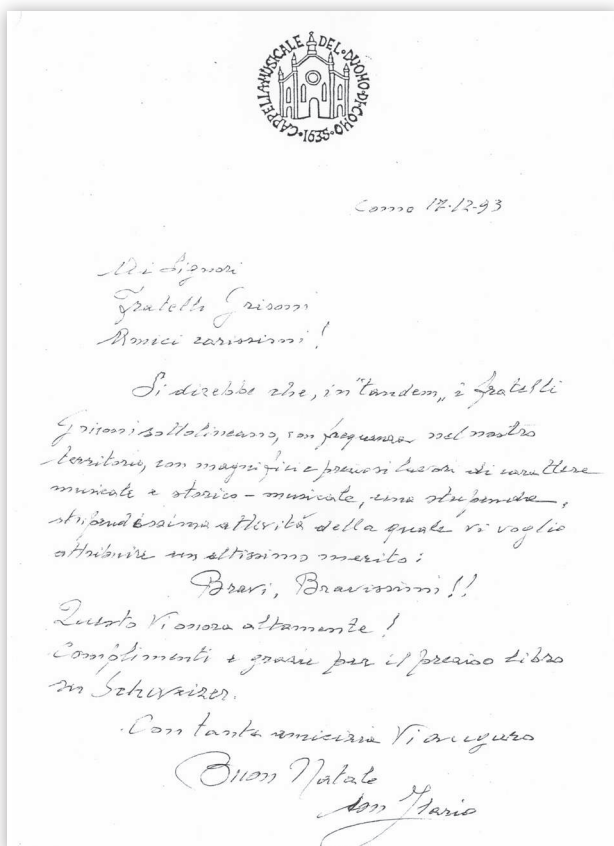 CAPPELLA·MUSICALE·DEL·DUOMO·DI·COMO
·1635·
Como 17-12-93
Ai Signori
Fratelli Grisoni
Amici carissimi!
Si direbbe che, in "tandem„ i fratelli
Grisoni sottolineano, con frequenza nel nostro
territorio, con magnifici e preziosi lavori di carattere
musicale e storico-musicale, una stupenda,
stupendissima attività della quale vi voglio
attribuire un altissimo merito:
Bravi, Bravissimi!!
Questo Vi onora altamente!
Complimenti e grazie per il prezioso libro
su Schweizer.
Con tanta amicizia Vi auguro
Buon Natale
don Ilario